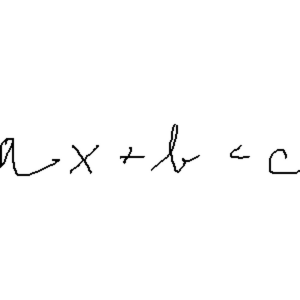 ax + b < c